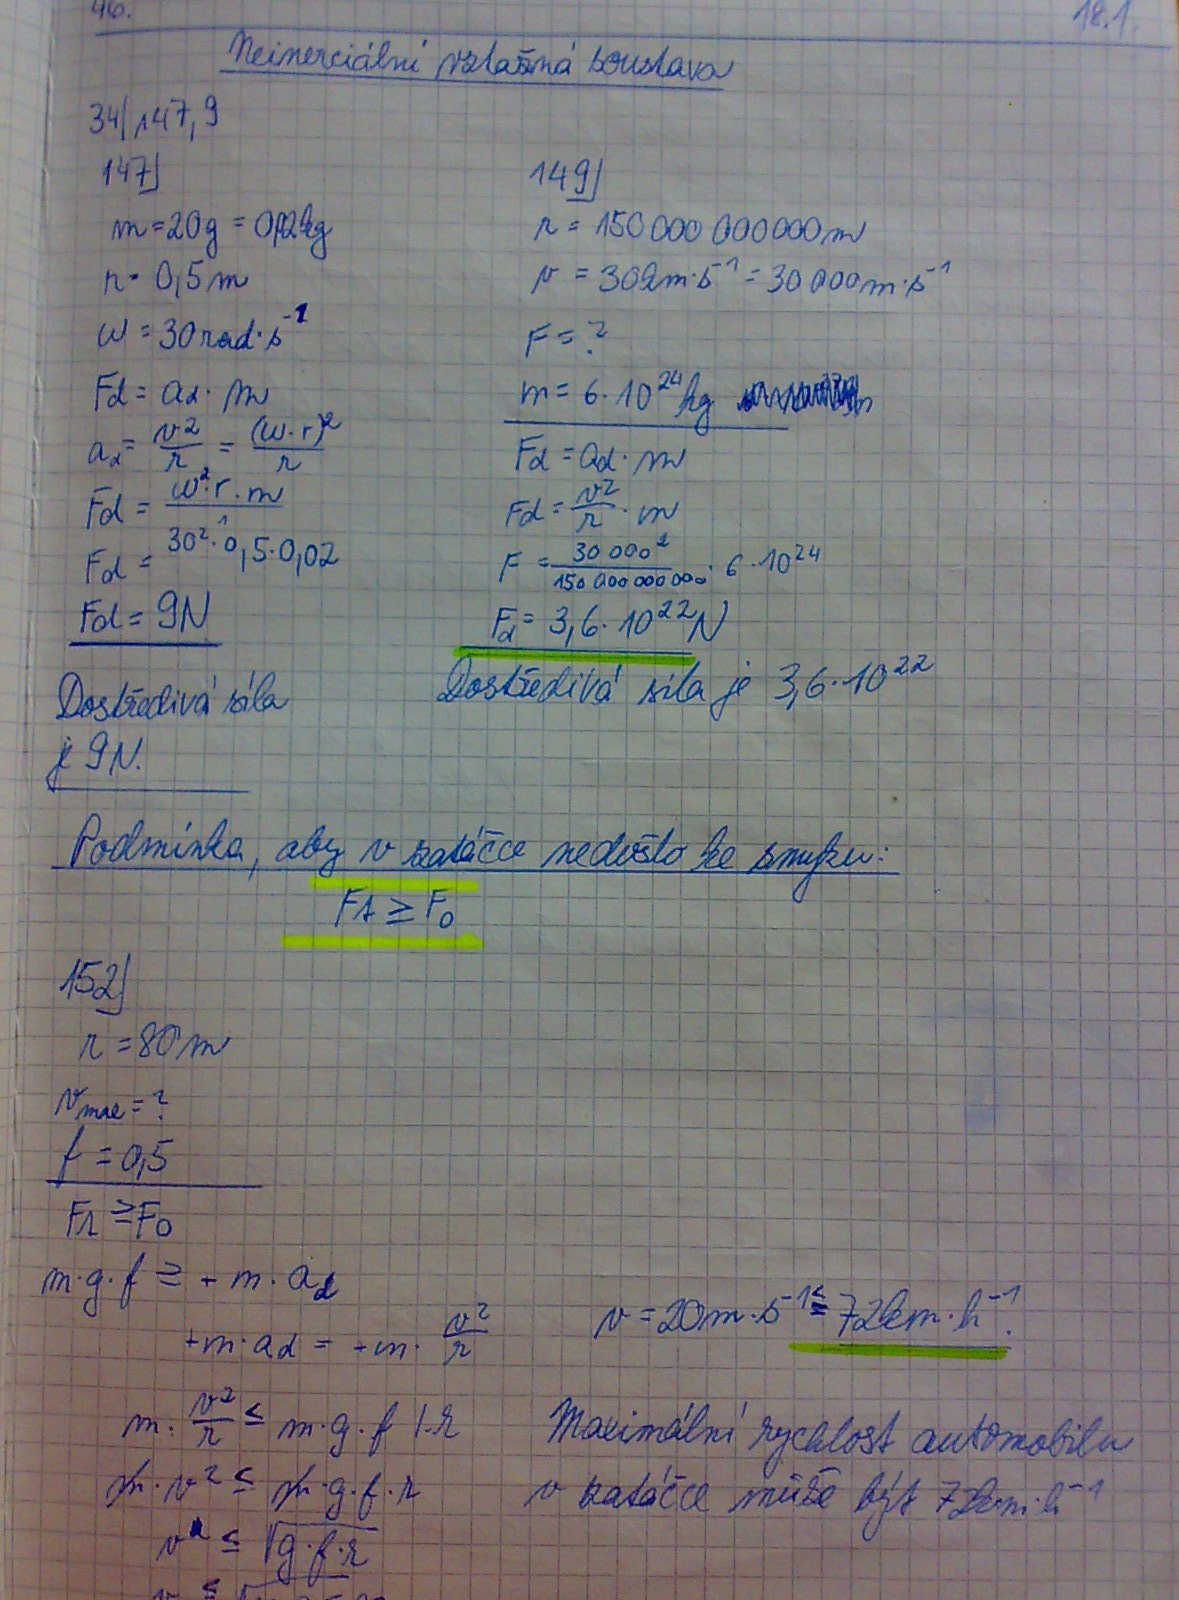 46.
18.1.
Neinerciální vztažná soustava
34/147,9
147)
m = 20g = 0,02kg
r = 0,5m
ω = 30 rad·s⁻¹
Fd = ad · m
ad = v²/r = (ω·r)²/r
Fd = ω²·r·m
Fd = 30²·0,5·0,02
Fd = 9N
Dostředivá síla
je 9N.
149)
r = 150 000 000 000m
v = 30km·s⁻¹ = 30 000m·s⁻¹
F = ?
m = 6·10²⁴kg
Fd = ad · m
Fd = v²/r · m
F = 30 000²/150 000 000 000 · 6·10²⁴
Fd = 3,6·10²²N
Dostředivá síla je 3,6·10²²
Podmínka, aby v zatáčce nedošlo ke smyku:
Ft ≥ Fo
152)
r = 80m
vmax = ?
f = 0,5
Ft ≥ Fo
m·g·f ≥ + m·ad
+m·ad = +m· v²/r
m· v²/r ≤ m·g·f |·r
m·v² ≤ m·g·f·r
v ≤ √g·f·r
v = 20m·s⁻¹ ≦ 72km·h⁻¹.
Maximální rychlost automobilu
v zatáčce může být 72km·h⁻¹